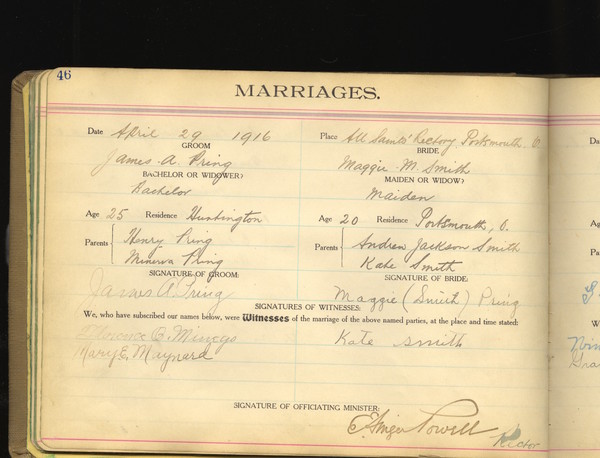 46
MARRIAGES.
Date April 29 1916 Place All Saints' Rectory, Portsmouth, O
GROOM BRIDE
James A. Pring Maggie M. Smith
BACHELOR OR WIDOWER? MAIDEN OR WIDOW?
Bachelor Maiden
Age 25 Residence Huntington Age 20 Residence Portsmouth, O.
Parents Henry Pring Parents Andrew Jackson Smith
Minerva Pring Kate Smith
SIGNATURE OF GROOM: SIGNATURE OF BRIDE:
James A. Pring Maggie (Smith) Pring
SIGNATURES OF WITNESSES:
We, who have subscribed our names below, were Witnesses of the marriage of the above named parties, at the place and time stated:
Florence G. Kate Smith
Mary E. Maynard
SIGNATURE OF OFFICIATING MINISTER:
Powell
Rector